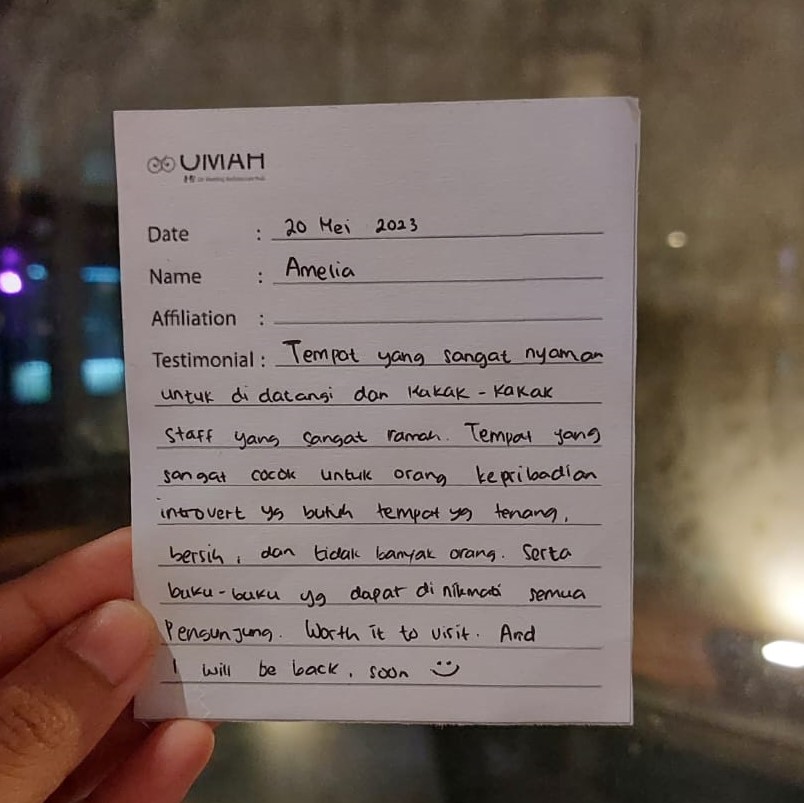 UMAH
Date : 20 Mei 2023
Name : Amelia
Affiliation :
Testimonial : Tempat yang sangat nyaman
untuk di datangi dan kakak - kakak
staff yang sangat ramah. Tempat yang
sangat cocok untuk orang kepribadian
introvert yg butuh tempat yg tenang,
bersih, dan tidak banyak orang. Serta
buku - buku yg dapat di nikmati semua
Pengunjung. Worth it to visit. And
I will be back, soon